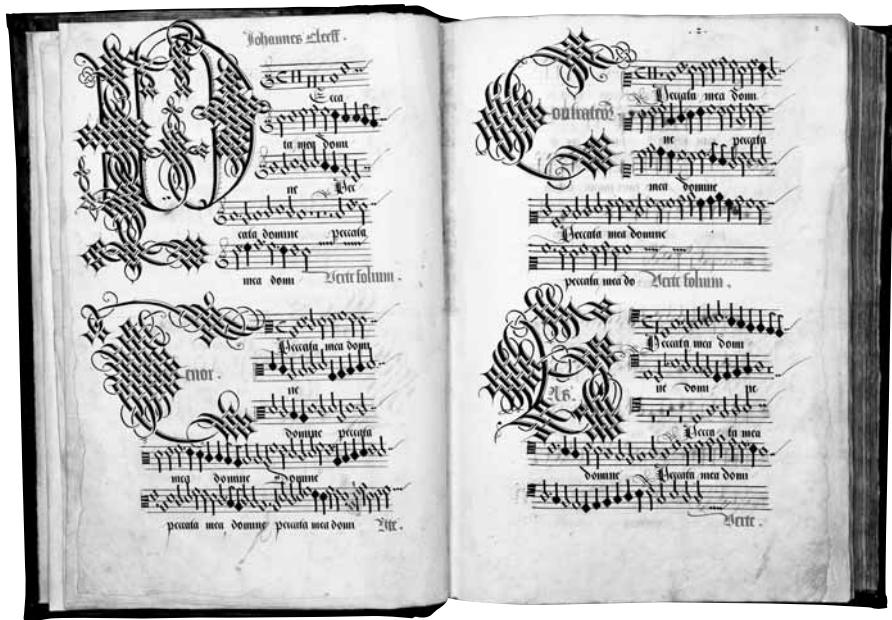 Johannes Cleeff.
P
Ecca
ta mea domi
ne Pec
cata domine peccata
mea domi Verte folium.
Tenor.
Peccata mea domi
ne
domine peccata
mea domine domine
peccata mea domine peccata mea domi Vte.
. 2 .
Peccata mea domi
ne peccata
mea domine
Peccata mea domine
peccata mea do Verte folium.
Peccata mea domi
ne domi ne
Pecca ta mea
domine Peccata mea domi
Verte.